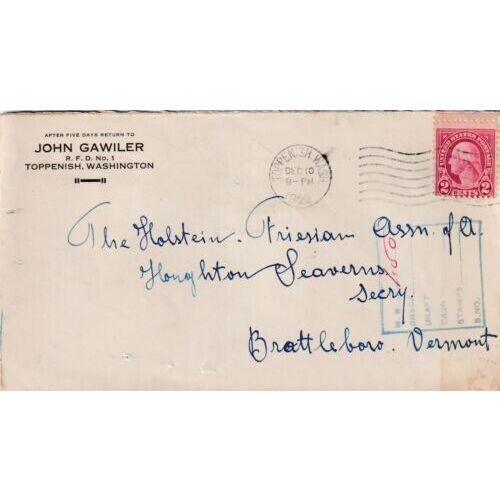 AFTER FIVE DAYS RETURN TO
JOHN GAWILER
R. F. D. No. 1
TOPPENISH, WASHINGTON
TOPPENISH, WASH.
DEC 10
8-PM
UNITED STATES POSTAGE
2 CENTS 2
The Holstein-Friesian Assn. of A.
Houghton Seaverns
Secry.
Brattleboro. Vermont
CHECK
DRAFT
CASH
STAMPS
S.NO.